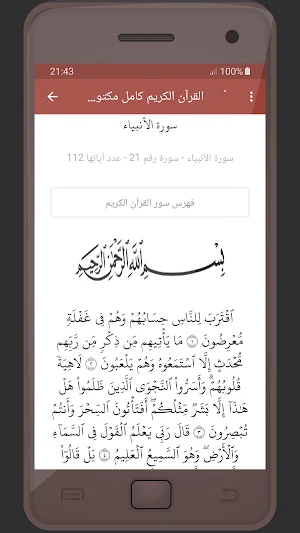 21:43 100%
القرآن الكريم كامل مكتو...
سورة الأنبياء
سورة الأنبياء - سورة رقم 21 - عدد آياتها 112
فهرس سور القرآن الكريم
بِسْمِ اللَّهِ الرَّحْمَٰنِ الرَّحِيمِ
اقْتَرَبَ لِلنَّاسِ حِسَابُهُمْ وَهُمْ فِي غَفْلَةٍ
مُّعْرِضُونَ ﴿١﴾ مَا يَأْتِيهِم مِّن ذِكْرٍ مِّن رَّبِّهِم
مُّحْدَثٍ إِلَّا اسْتَمَعُوهُ وَهُمْ يَلْعَبُونَ ﴿٢﴾ لَاهِيَةً
قُلُوبُهُمْ ۗ وَأَسَرُّوا النَّجْوَى الَّذِينَ ظَلَمُوا هَلْ
هَٰذَا إِلَّا بَشَرٌ مِّثْلُكُمْ ۖ أَفَتَأْتُونَ السِّحْرَ وَأَنتُمْ
تُبْصِرُونَ ﴿٣﴾ قَالَ رَبِّي يَعْلَمُ الْقَوْلَ فِي السَّمَاءِ
وَالْأَرْضِ ۖ وَهُوَ السَّمِيعُ الْعَلِيمُ ﴿٤﴾ بَلْ قَالُوا